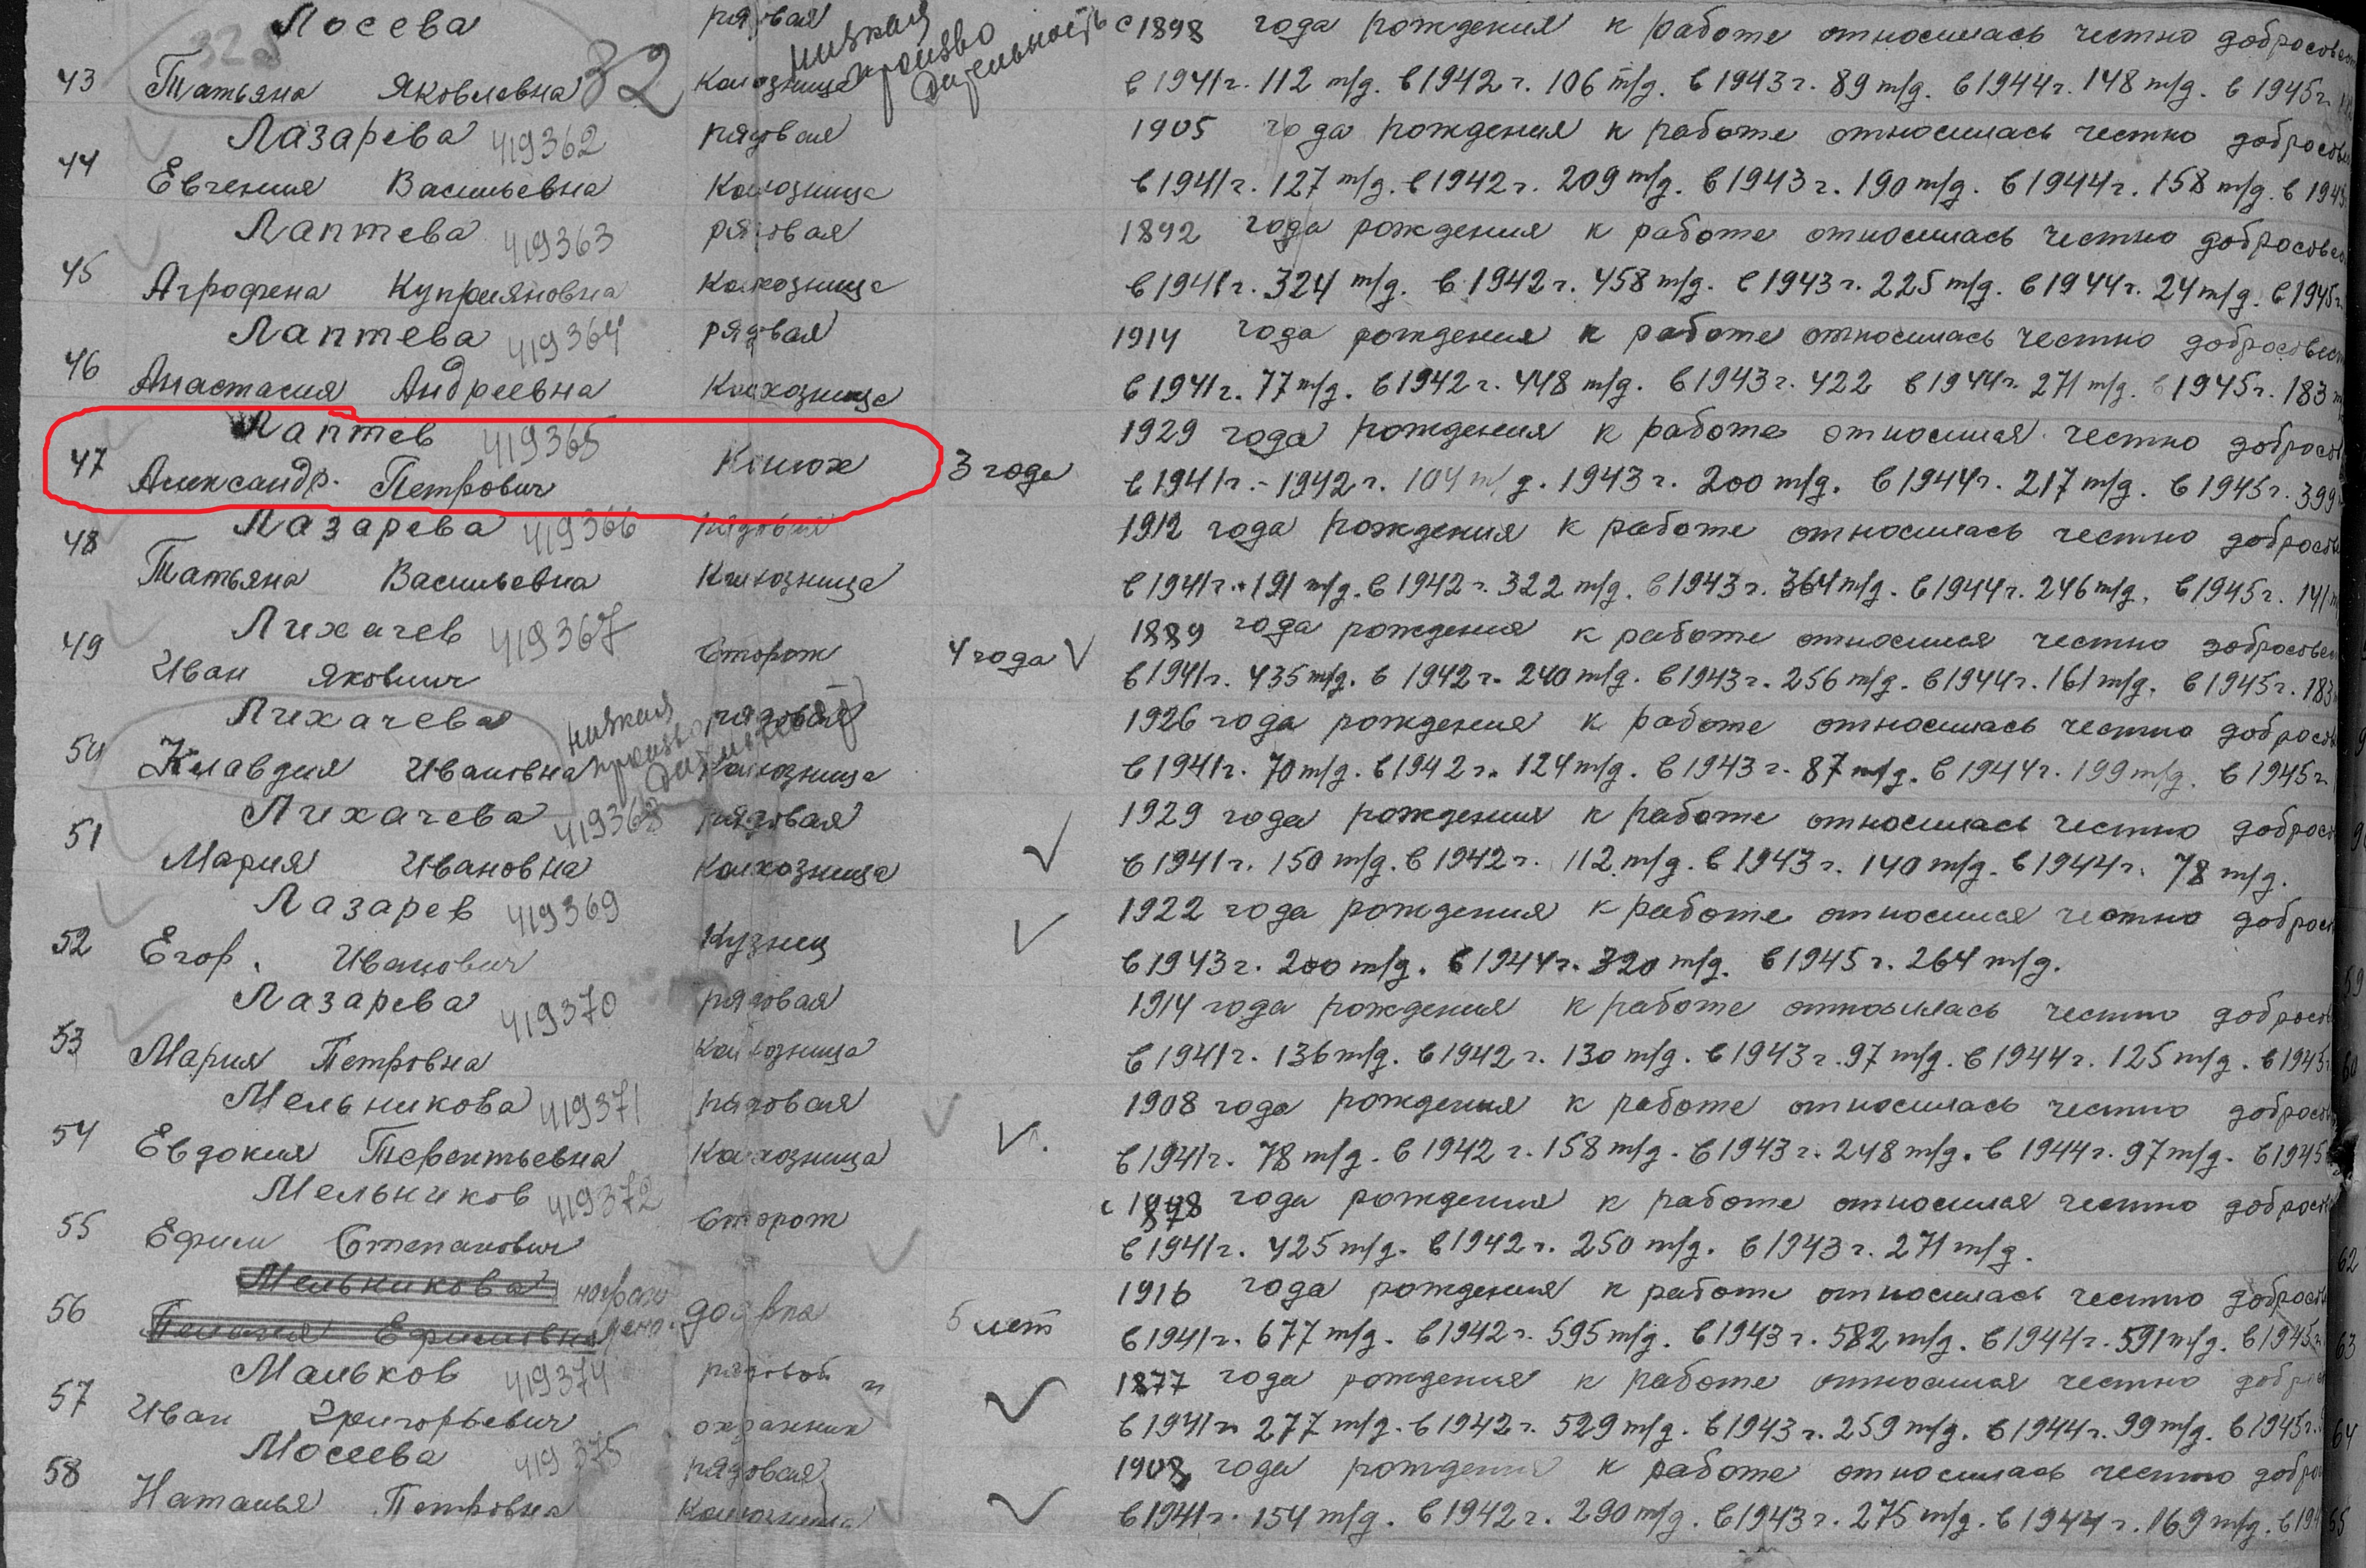 Лосева рядовая низкая с 1898 года рождения к работе относилась честно добросовест
43 Татьяна Яковлевна 32 колхозница произво дительность в 1941г. 112 т/д. в 1942 г. 106 т/д. в 1943 г. 89 т/д. в 1944г. 148 т/д. в 1945г.
Лазарева 419362 рядовая 1905 года рождения к работе относилась честно добросове
44 Евгения Васильевна колхозница в 1941г. 127 т/д. в 1942 г. 209 т/д. в 1943 г. 190 т/д. в 1944г. 158 т/д. в 1945
Лаптева 419363 рядовая 1892 года рождения к работе относилась честно добросове
45 Агрофена Куприяновна колхозница в 1941г. 324 т/д. в 1942 г. 458 т/д. в 1943 г. 225 т/д. в 1944г. 24 т/д. в 1945г.
Лаптева 419364 рядовая 1914 года рождения к работе относилась честно добросовест
46 Анастасия Андреевна колхозница в 1941г. 77 т/д. в 1942 г. 448 т/д. в 1943 г. 422 в 1944г. 271 т/д. в 1945г. 183
Лаптев 419365 1929 года рождения к работе относился честно добросо
47 Александр. Петрович Конюх 3 года в 1941г. - 1942 г. 104 т/д. 1943 г. 200 т/д. в 1944г. 217 т/д. в 1945г. 399
Лазарева 419366 рядовая 1912 года рождения к работе относилась честно добросо
48 Татьяна Васильевна колхозница в 1941г. 191 т/д. в 1942 г. 322 т/д. в 1943 г. 364 т/д. в 1944г. 246 т/д. в 1945г. 141
Лихачев 419367 1889 года рождения к работе относился честно добросовес
49 Иван Яковлич Сторож 4 года в 1941г. 435 т/д. в 1942 г. 240 т/д. в 1943 г. 256 т/д. в 1944г. 161 т/д. в 1945г. 183
Лихачева низкая рядовая 1926 года рождения к работе относилась честно добросо
50 Клавдия Ивановна колхозница в 1941г. 70 т/д. в 1942 г. 124 т/д. в 1943 г. 87 т/д. в 1944г. 199 т/д. в 1945г
Лихачева 419368 рядовая 1929 года рождения к работе относилась честно добросо
51 Мария Ивановна колхозница в 1941г. 150 т/д. в 1942 г. 112 т/д. в 1943 г. 140 т/д. в 1944г. 78 т/д.
Лазарев 419369 1922 года рождения к работе относился честно доброс
52 Егор. Иванович Кузнец в 1943 г. 200 т/д. в 1944г. 320 т/д. в 1945 г. 264 т/д.
Лазарева 419370 рядовая 1914 года рождения к работе относилась честно добросо
53 Мария Петровна колхозница в 1941г. 136 т/д. в 1942 г. 130 т/д. в 1943 г. 97 т/д. в 1944г. 125 т/д. в 1945
Мельникова 419371 рядовая 1908 года рождения к работе относилась честно добросо
54 Евдокия Терентьевна колхозница в 1941г. 78 т/д. в 1942 г. 158 т/д. в 1943 г. 248 т/д. в 1944г. 97 т/д. в 1945
Мельников 419372 с года рождения к работе относился честно добросо
55 Ефим Степанович Сторож в 1941г. 425 т/д. в 1942 г. 250 т/д. в 1943 г. 271 т/д.
Мельникова 1916 года рождения к работе относилась честно добросо
56 Пелагея Ефимовна доярка 5 лет в 1941г. 677 т/д. в 1942 г. 595 т/д. в 1943 г. 582 т/д. в 1944г. 591 т/д. в 1945г. 63
Мальков 419374 рядовой и 1877 года рождения к работе относился честно добр
57 Иван Григорьевич охранник в 1941г. 277 т/д. в 1942 г. 529 т/д. в 1943 г. 259 т/д. в 1944г. 99 т/д. в 1945г. 64
Мосеева 419375 рядовая 1908 года рождения к работе относилась честно добро
58 Наталья Петровна колхозница в 1941г. 154 т/д. в 1942 г. 290 т/д. в 1943 г. 275 т/д. в 1944 г. 169 т/д. в 194